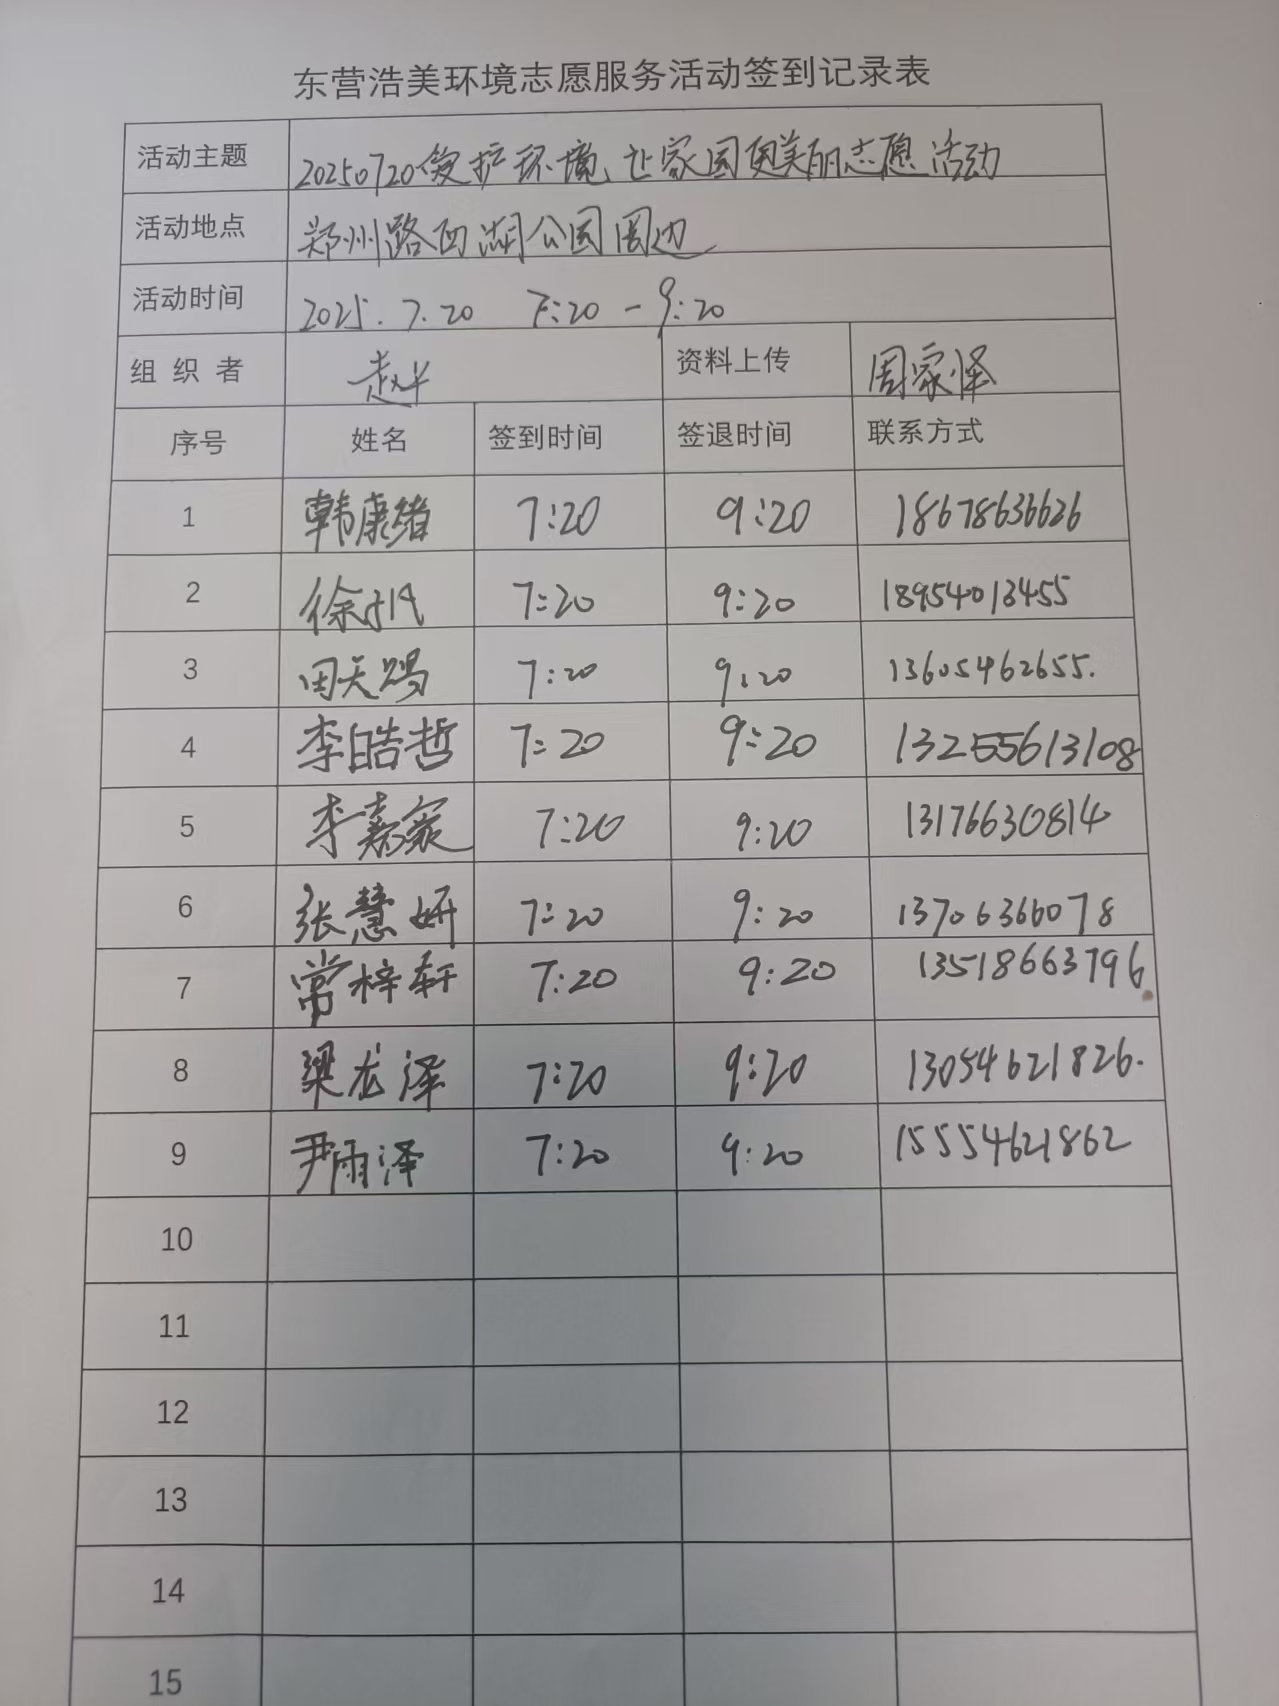 东营浩美环境志愿服务活动签到记录表
活动主题 20250720爱护环境、让家园更美丽志愿活动
活动地点 郑州路西湖公园周边
活动时间 2025.7.20 7:20-9:20
组织者 赵 资料上传 周家怿
序号 姓名 签到时间 签退时间 联系方式
1 韩康绪 7:20 9:20 18678636626
2 徐 7:20 9:20 18954013455
3 田天赐 7:20 9:20 13605462655.
4 李皓哲 7:20 9:20 13255613108
5 李嘉家 7:20 9:20 13176630814
6 张慧妍 7:20 9:20 13706366078
7 常梓轩 7:20 9:20 13518663796
8 梁龙泽 7:20 9:20 13054621826.
9 尹雨泽 7:20 9:20 15554621862
10
11
12
13
14
15